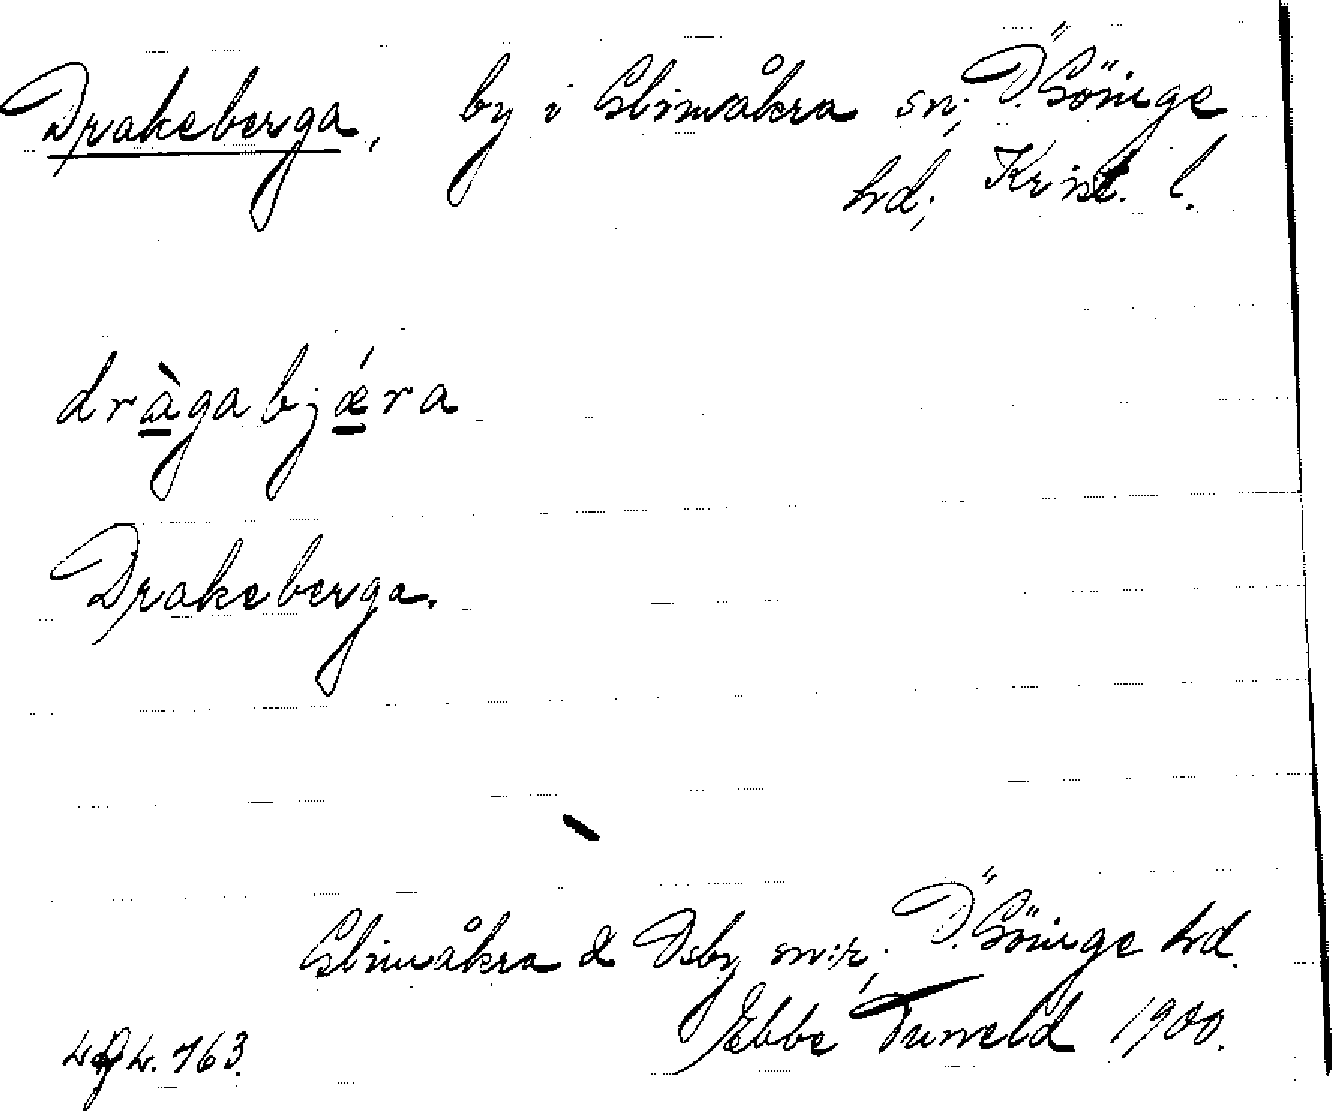 Drakeberga, by i Glimåkra sn, Ö. Göinge
hd, Krist. l.
dràgabjǽra
Drakeberga.
Glimåkra & Osby sn:r, Ö. Göinge hd.
Ebbe Tuneld 1900.
763.